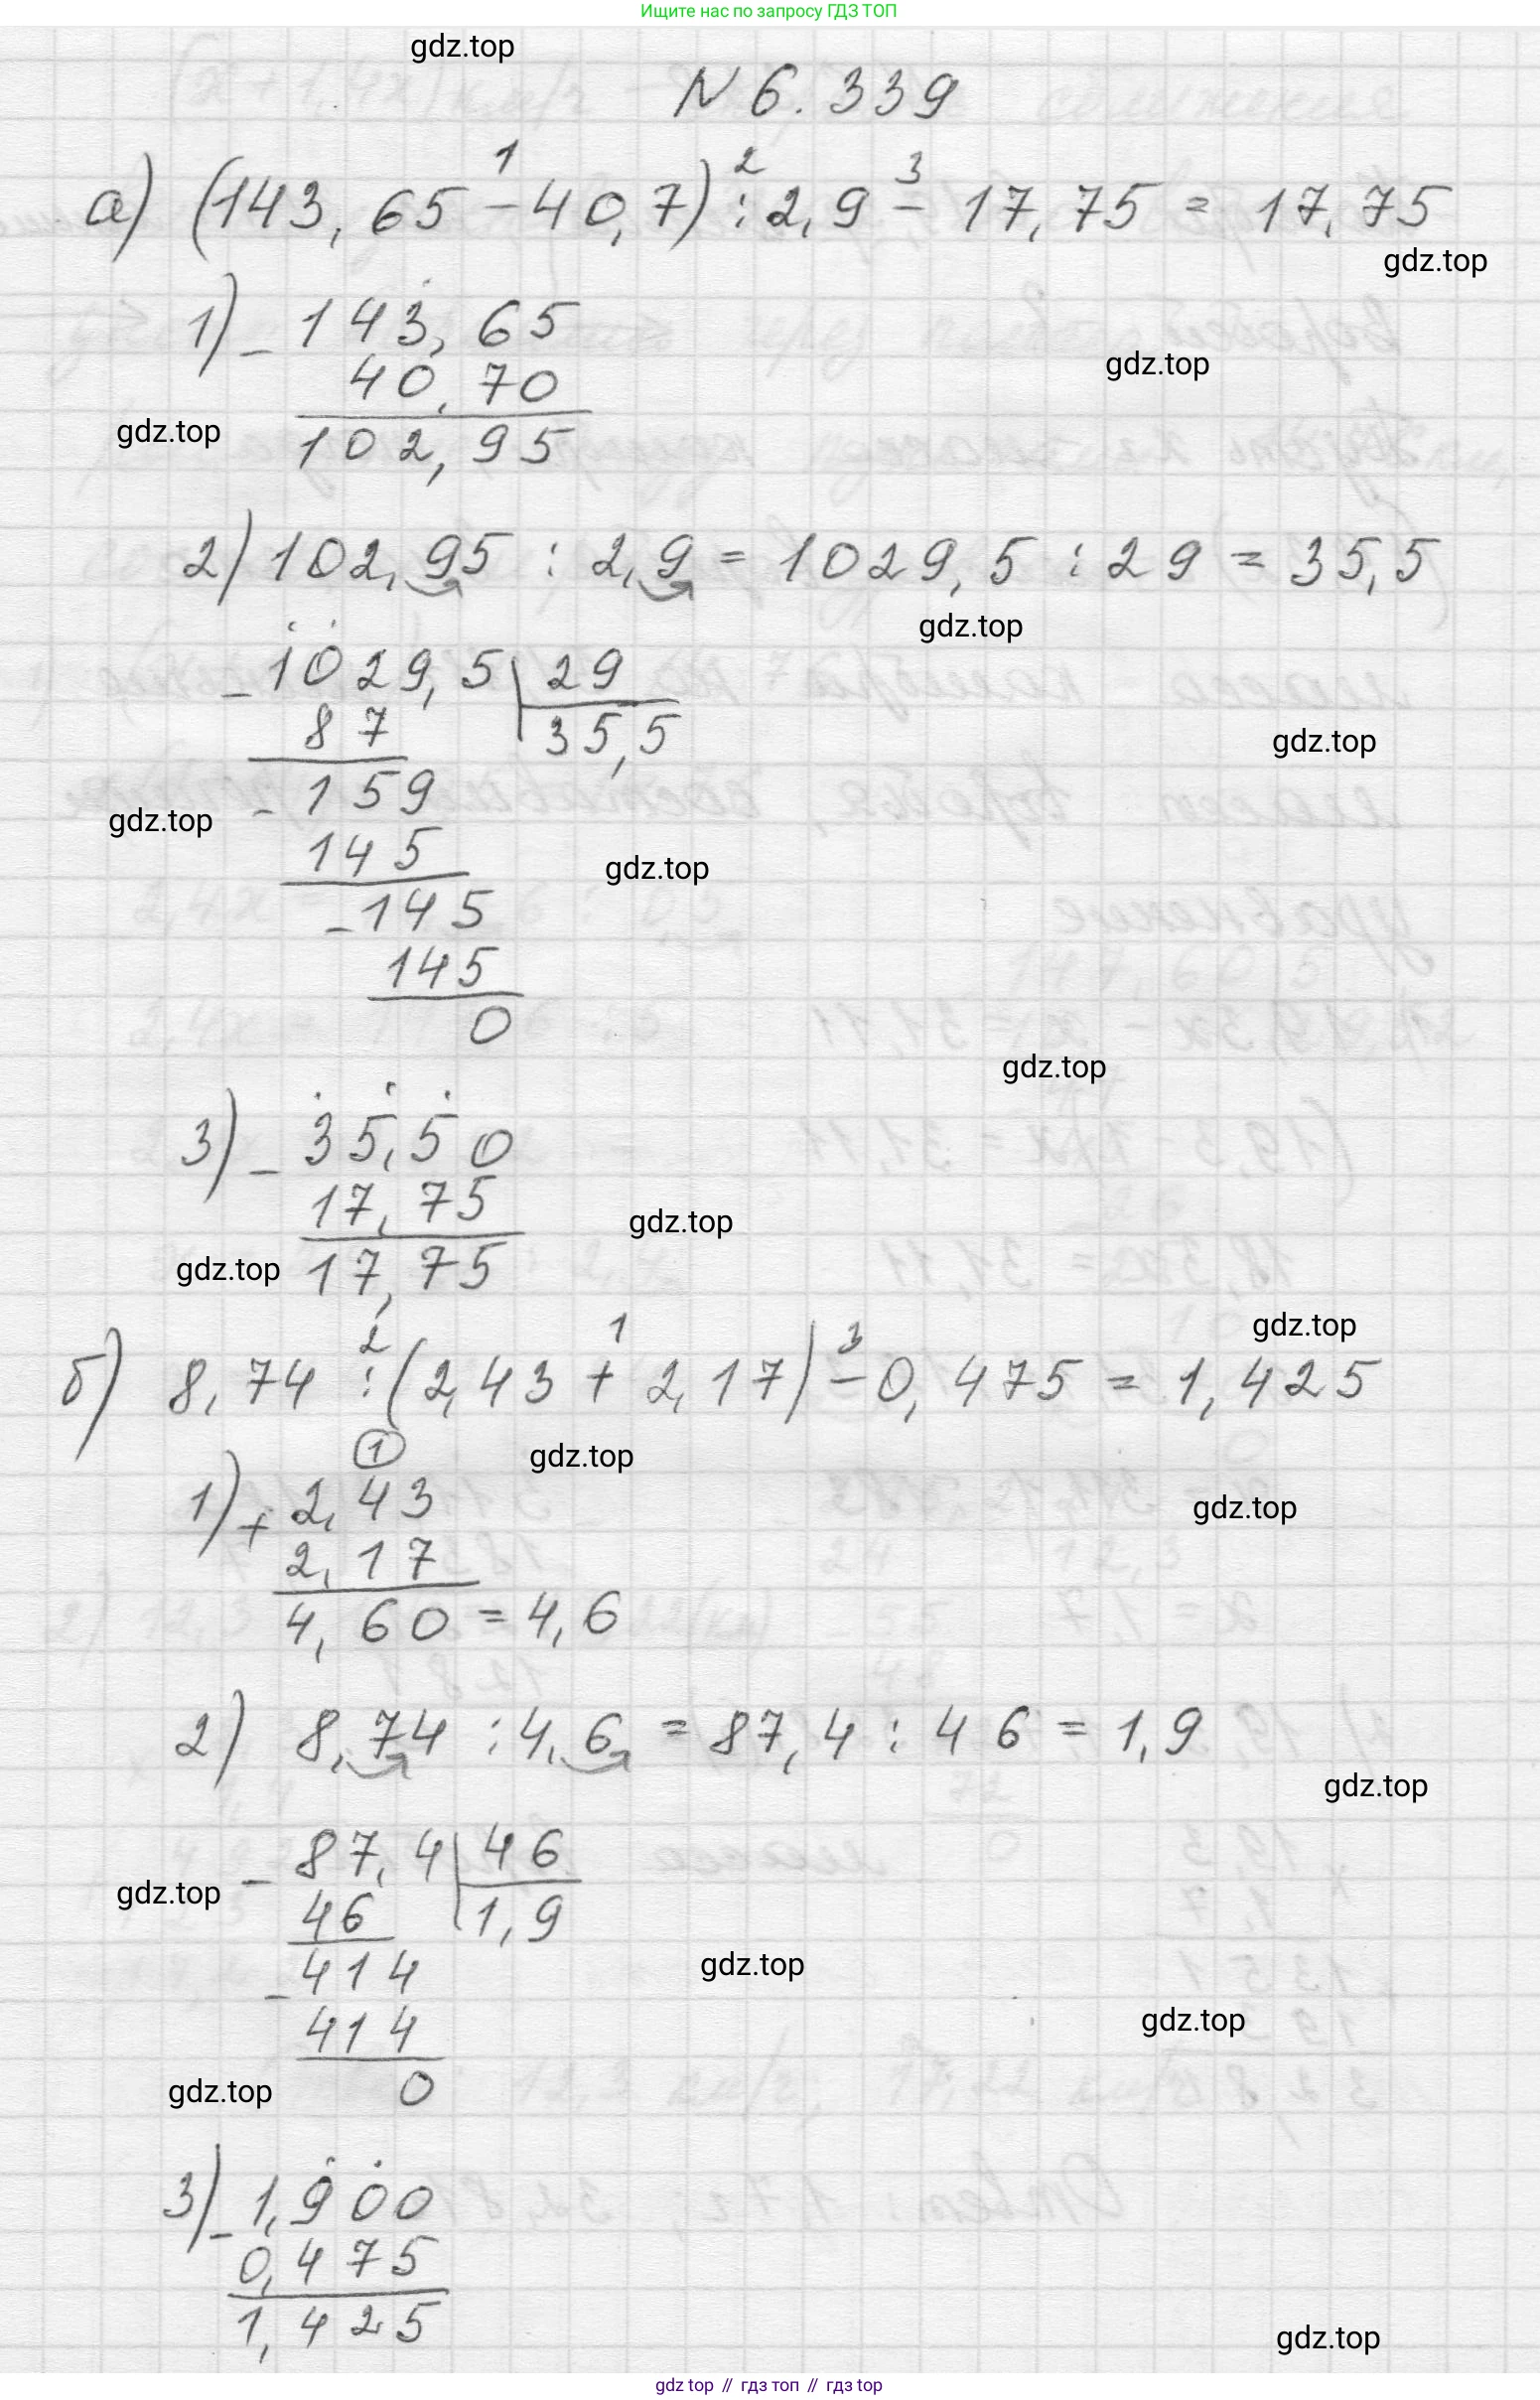 Ищите нас по запросу ГДЗ ТОП
gdz.top
N 6.339
1 2 3
а) (143,65 - 40,7) : 2,9 - 17,75 = 17,75
gdz.top
1) - 143,65
gdz.top
40,70
gdz.top
102,95
2) 102,95 : 2,9 = 1029,5 : 29 = 35,5
gdz.top
- 1029,5 | 29
87 35,5
gdz.top
- 159
gdz.top
145
gdz.top
- 145
145
0
gdz.top
3) - 35,50
17,75
gdz.top
gdz.top
17,75
gdz.top
2 1 3
б) 8,74 : (2,43 + 2,17) - 0,475 = 1,425
1
gdz.top
1) + 2,43
gdz.top
2,17
4,60 = 4,6
2) 8,74 : 4,6 = 87,4 : 46 = 1,9
gdz.top
- 87,4 | 46
gdz.top
46 1,9
- 414
gdz.top
414
gdz.top
0
gdz.top
3) - 1,900
0,475
1,425
gdz.top
gdz top // гдз топ // гдз top